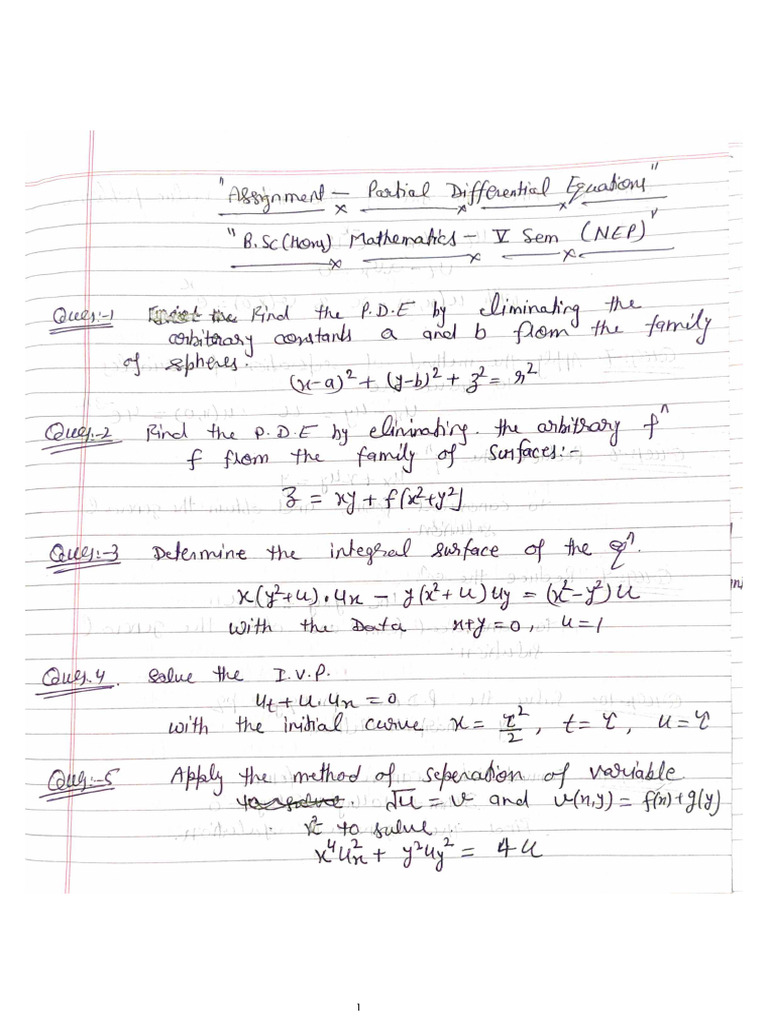 "Assignment — Partial Differential Equations"
"B.Sc(Hons) Mathematics — V Sem (NEP)"
Ques:-1 Find the P.D.E by eliminating the
arbitrary constants a and b from the family
of spheres.
(x-a)² + (y-b)² + z² = r²
Ques:-2 Find the P.D.E by eliminating the arbitrary fⁿ
f from the family of surfaces:-
z = xy + f(x²+y²)
Ques:-3 Determine the integral surface of the eqⁿ.
x(y²+u).ux - y(x²+u)uy = (x²-y²)u
with the Data x+y=0, u=1
Ques.4. Solve the I.V.P.
ut + u.ux = 0
with the initial curve x = τ²/2, t = τ, u = τ
Ques:-5 Apply the method of seperation of variable
√u = v and v(x,y) = f(x)+g(y)
to solve
x⁴ux² + y²uy² = 4u
1